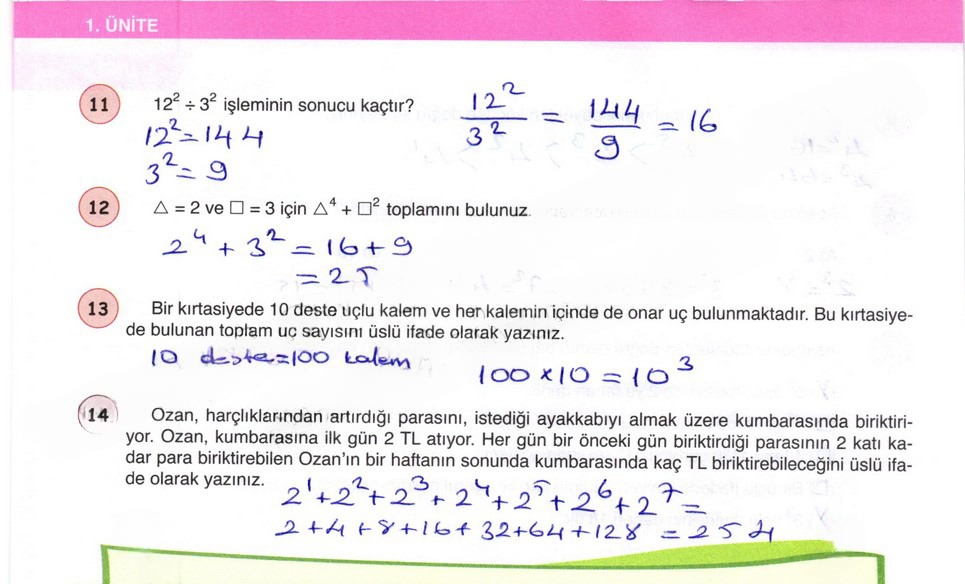 1. ÜNİTE
11 12² ÷ 3² işleminin sonucu kaçtır?
12² = 144
3² = 9
12²/3² = 144/9 = 16
12 △ = 2 ve □ = 3 için △⁴ + □² toplamını bulunuz.
2⁴ + 3² = 16 + 9
= 25
13 Bir kırtasiyede 10 deste uçlu kalem ve her kalemin içinde de onar uç bulunmaktadır. Bu kırtasiye-
de bulunan toplam uç sayısını üslü ifade olarak yazınız.
10 deste=100 kalem
100 x 10 = 10³
14 Ozan, harçlıklarından artırdığı parasını, istediği ayakkabıyı almak üzere kumbarasında biriktiri-
yor. Ozan, kumbarasına ilk gün 2 TL atıyor. Her gün bir önceki gün biriktirdiği parasının 2 katı ka-
dar para biriktirebilen Ozan'ın bir haftanın sonunda kumbarasında kaç TL biriktirebileceğini üslü ifa-
de olarak yazınız.
2¹+2²+2³+2⁴+2⁵+2⁶+2⁷ =
2+4+8+16+32+64+128 = 254